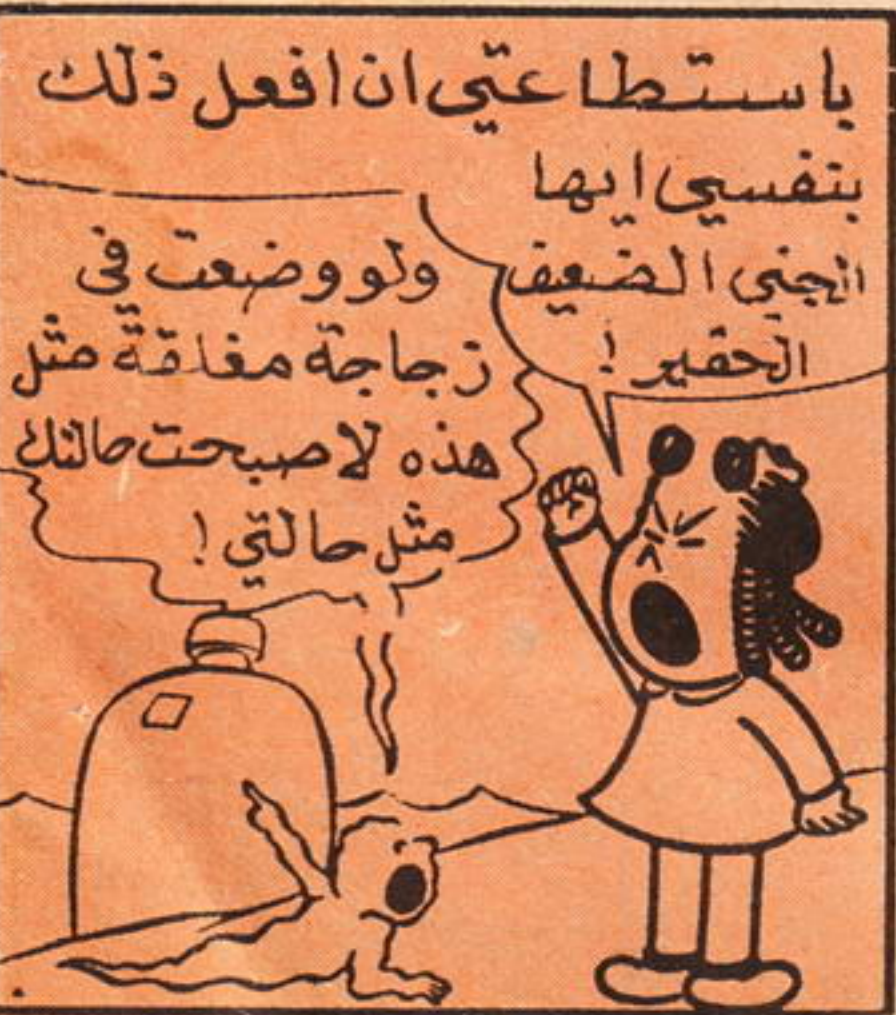 باستطاعتي ان افعل ذلك
بنفسي ايها
الجني الضعيف
الحقير !
ولو وضعت في
زجاجة مغلقة مثل
هذه لاصبحت حالتك
مثل حالتي !